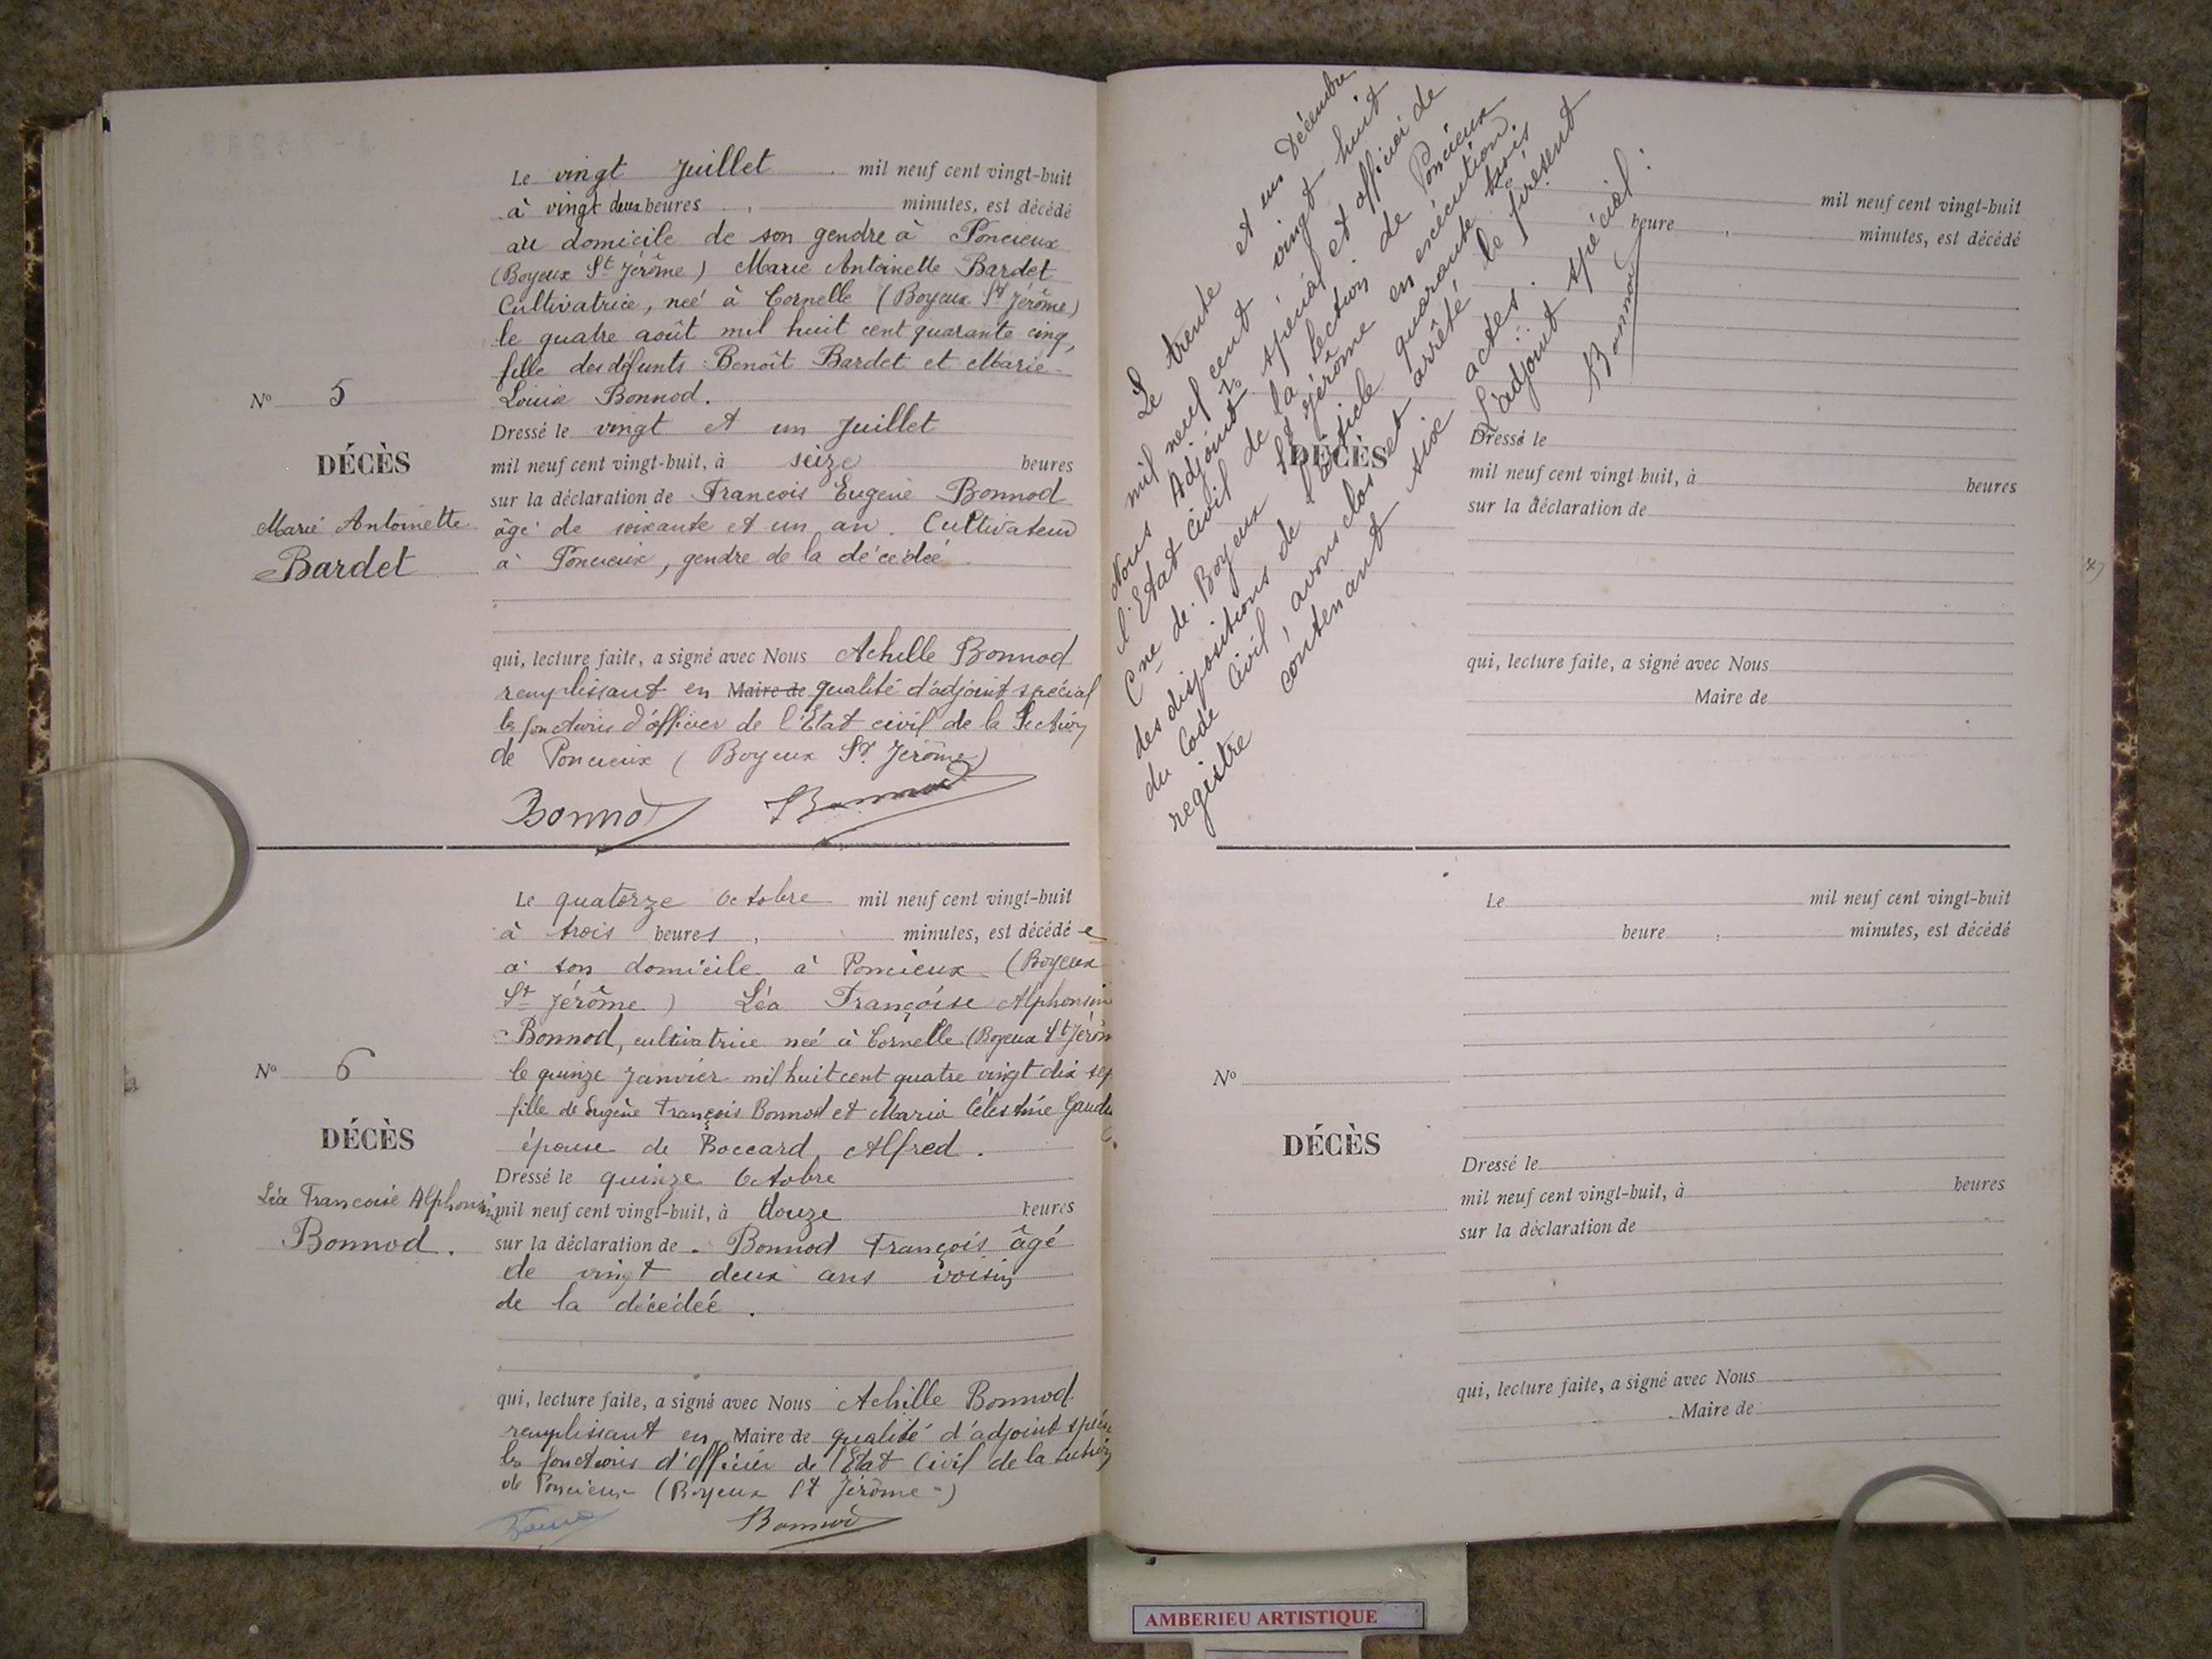 Le vingt Juillet mil neuf cent vingt-huit
à vingt deux heures , minutes, est décédé
au domicile de son gendre à Poncieux
(Boyeux St Jérôme) Marie Antoinette Bardet
Cultivatrice, neé à Cornelle (Boyeux St Jérôme)
le quatre août mil huit cent quarante cinq,
fille des défunts Benoît Bardet et Marie
Louise Bonnod.
No 5
DÉCÈS
Marie Antoinette
Bardet
Dressé le vingt et un Juillet
mil neuf cent vingt-huit, à seize heures
sur la déclaration de Francois Eugene Bonnod
âgé de soixante et un an. Cultivateur
à Poncieux, gendre de la décédeé
qui, lecture faite, a signé avec Nous Achille Bonnod
remplissant en Maire de qualité d'adjoint spécial
les fonctions d'officier de l'Etat civil de la Section
de Poncieux (Boyeux St Jérôme)
Bonnod Bonnod
Le quatorze Octobre mil neuf cent vingt-huit
à trois heures , minutes, est décédé e
à son domicile à Poncieux (Boyeux
St Jérôme) Léa Françoise Alphonsine
Bonnod, cultivatrice neé à Cornelle (Boyeux St Jérôm
le quinze Janvier mil huit cent quatre vingt dix sep
fille de Eugène François Bonnod et Marie Célestine
épouse de Boccard Alfred.
No 6
DÉCÈS
Léa Francoise Alphonsine
Bonnod.
Dressé le quinze Octobre
mil neuf cent vingt-huit, à douze heures
sur la déclaration de Bonnod François âgé
de vingt deux ans voisin
de la décédeé.
qui, lecture faite, a signé avec Nous Achille Bonnod
remplissant en Maire de qualité d'adjoint spéci
les fonctions d'officier de l'Etat Civil de la Section
de Poncieux (Boyeux St Jérôme)
Bonnod
Le trente et un Décembre
mil neuf cent vingt huit
Nous Adjoint spécial et officier de
l'Etat civil de la section de Poncieux
Cne de Boyeux St Jérôme en exécution
des dispositions de l'article quarante trois
du Code Civil, avons clos et arrêté le présent
registre contenant six actes.
L'adjoint spécial:
Bonnod
mil neuf cent vingt-huit
heure , minutes, est décédé
DÉCÈS
Dressé le
mil neuf cent vingt huit, à heures
sur la déclaration de
qui, lecture faite, a signé avec Nous
Maire de
Le mil neuf cent vingt-huit
heure , minutes, est décédé
No
DÉCÈS
Dressé le
mil neuf cent vingt-huit, à heures
sur la déclaration de
qui, lecture faite, a signé avec Nous
Maire de
AMBERIEU ARTISTIQUE